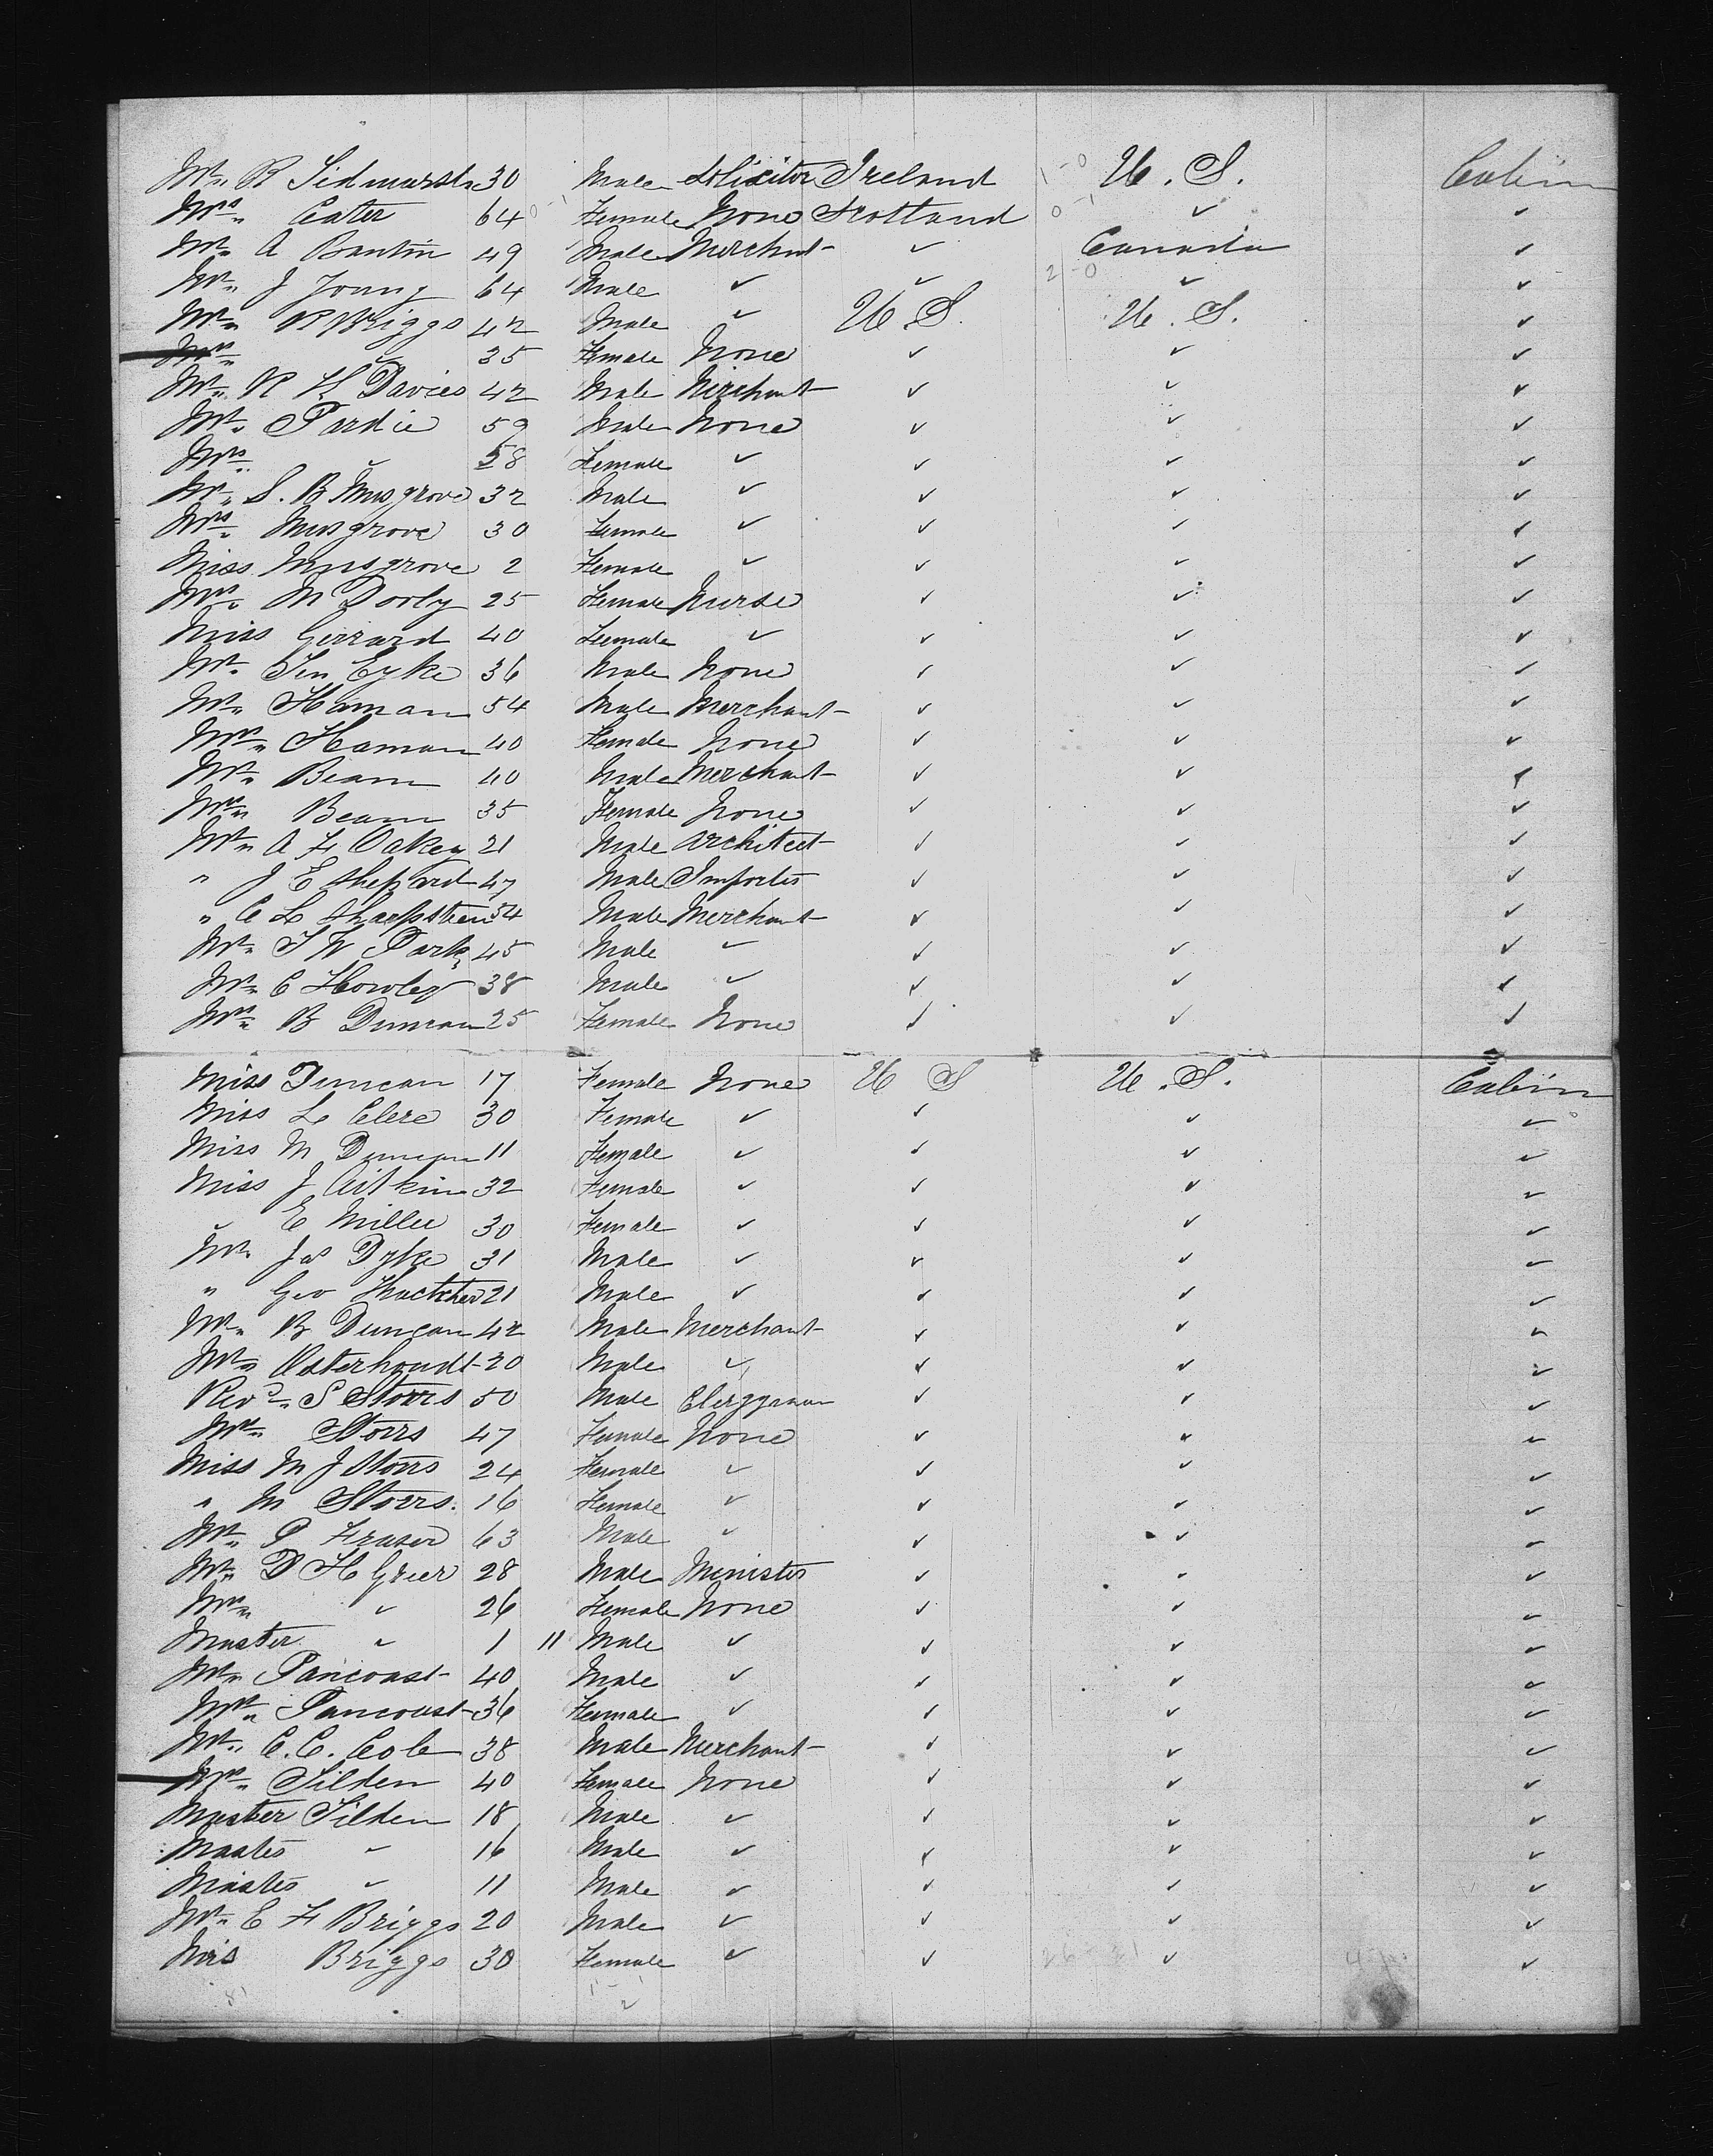 Mr. R Sidmarsh 30 Male Solicitor Ireland U. S. Cabin
Mrs. Cater 64 Female None Scotland ✓ ✓
Mr. A Bantin 49 Male Merchant ✓ Canada ✓
Mr. J Young 64 Male ✓ ✓ ✓ ✓
Mr. R Briggs 42 Male ✓ U. S. U. S. ✓
Mrs. ✓ 35 Female None ✓ ✓ ✓
Mr. R H Davies 42 Male Merchant ✓ ✓ ✓
Mr. Pardie 59 Male None ✓ ✓ ✓
Mrs. ✓ 58 Female ✓ ✓ ✓ ✓
Mr. S. B Musgrove 32 Male ✓ ✓ ✓ ✓
Mrs. Musgrove 30 Female ✓ ✓ ✓ ✓
Miss Musgrove 2 Female ✓ ✓ ✓ ✓
Mrs. M Dorly 25 Female Nurse ✓ ✓ ✓
Miss Gerrard 40 Female ✓ ✓ ✓ ✓
Mr. Ten Eyke 36 Male None ✓ ✓ ✓
Mr. Haman 54 Male Merchant ✓ ✓ ✓
Mrs. Haman 40 Female None ✓ ✓ ✓
Mr. Beam 40 Male Merchant ✓ ✓ ✓
Mrs. Beam 35 Female None ✓ ✓ ✓
Mr. A F Oakey 21 Male Architect ✓ ✓ ✓
" J E Shepard 47 Male Importer ✓ ✓ ✓
" C L Sharpsteen 54 Male Merchant ✓ ✓ ✓
Mr. T W Park 45 Male ✓ ✓ ✓ ✓
Mr. C Howley 38 Male ✓ ✓ ✓ ✓
Mrs. B Duncan 25 Female None ✓ ✓ ✓
Miss Duncan 17 Female None U S U. S. Cabin
Miss Le Clere 30 Female ✓ ✓ ✓ ✓
Miss M Duncan 11 Female ✓ ✓ ✓ ✓
Miss J Aitkin 32 Female ✓ ✓ ✓ ✓
✓ E Miller 30 Female ✓ ✓ ✓ ✓
Mr. Jas Dyke 31 Male ✓ ✓ ✓ ✓
" Geo Thactcher 21 Male ✓ ✓ ✓ ✓
Mr. B Duncan 42 Male Merchant ✓ ✓ ✓
Mr. Osterhoudt 20 Male ✓ ✓ ✓ ✓
Revd. S Storrs 50 Male Clergyman ✓ ✓ ✓
Mrs. Storrs 47 Female None ✓ ✓ ✓
Miss M J Storrs 24 Female ✓ ✓ ✓ ✓
" M Storrs. 16 Female ✓ ✓ ✓ ✓
Mr. P Fraser 63 Male ✓ ✓ ✓ ✓
Mr. D H Greer 28 Male Minister ✓ ✓ ✓
Mrs. ✓ 26 Female None ✓ ✓ ✓
Master ✓ 1 11 Male ✓ ✓ ✓ ✓
Mr. Pancoast 40 Male ✓ ✓ ✓ ✓
Mrs. Pancoast 36 Female ✓ ✓ ✓ ✓
Mr. C. C. Cole 38 Male Merchant ✓ ✓ ✓
Mrs. Tilden 40 Female None ✓ ✓ ✓
Master Tilden 18 Male ✓ ✓ ✓ ✓
Master ✓ 16 Male ✓ ✓ ✓ ✓
Master ✓ 11 Male ✓ ✓ ✓ ✓
Mr. E F Briggs 20 Male ✓ ✓ ✓ ✓
Mrs Briggs 30 Female ✓ ✓ ✓ ✓